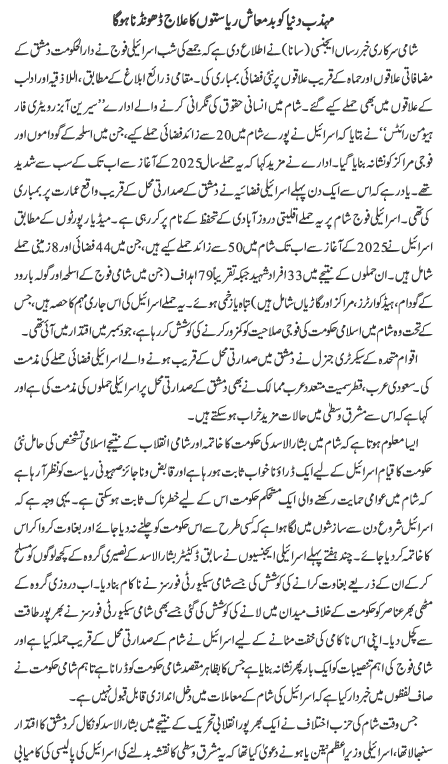 مہذب دنیا کو بدمعاش ریاستوں کا علاج ڈھونڈنا ہوگا
شامی سرکاری خبر رساں ایجنسی (سانا) نے اطلاع دی ہے کہ جمعے کی شب اسرائیلی فوج نے دارالحکومت دمشق کے
مضافاتی علاقوں اور حماہ کے قریب علاقوں پر نئی فضائی بمباری کی۔ مقامی ذرائع ابلاغ کے مطابق، اللاذقیہ اور ادلب
کے علاقوں میں بھی حملے کیے گئے۔ شام میں انسانی حقوق کی نگرانی کرنے والے ادارے ”سیرین آبزرویٹری فار
ہیومن رائٹس“ نے بتایا کہ اسرائیل نے پورے شام میں 20 سے زائد فضائی حملے کیے، جن میں اسلحہ کے گوداموں اور
فوجی مراکز کو نشانہ بنایا گیا۔ ادارے نے مزید کہا کہ یہ حملے سال 2025 کے آغاز سے اب تک کے سب سے شدید
تھے۔ یاد رہے کہ اس سے ایک دن پہلے اسرائیلی فضائیہ نے دمشق کے صدارتی محل کے قریب واقع عمارت پر بمباری
کی تھی۔ اسرائیلی فوج شام پر یہ حملے اقلیتی دروز آبادی کے تحفظ کے نام پر کر رہی ہے۔ میڈیا رپورٹوں کے مطابق
اسرائیل نے 2025 کے آغاز سے اب تک شام میں 50 سے زائد حملے کیے ہیں، جن میں 44 فضائی اور 8 زمینی حملے
شامل ہیں۔ ان حملوں کے نتیجے میں 33 افراد شہید جبکہ تقریباً 79 اہداف (جن میں شامی فوج کے اسلحہ اور گولہ بارود
کے گودام، ہیڈکوارٹرز، مراکز اور گاڑیاں شامل ہیں) تباہ یا زخمی ہوئے۔ یہ حملے اسرائیل کی اس جاری مہم کا حصہ ہیں، جس
کے تحت وہ شام میں اسلامی حکومت کی فوجی صلاحیت کو کمزور کرنے کی کوشش کر رہا ہے، جو دسمبر میں اقتدار میں آئی تھی۔
اقوام متحدہ کے سیکرٹری جنرل نے دمشق میں صدارتی محل کے قریب ہونے والے اسرائیلی فضائی حملے کی مذمت
کی۔ سعودی عرب، قطر سمیت متعدد عرب ممالک نے بھی دمشق کے صدارتی محل پر اسرائیلی حملوں کی مذمت کی ہے اور
کہا ہے کہ اس سے مشرق وسطیٰ میں حالات مزید خراب ہو سکتے ہیں۔
ایسا معلوم ہوتا ہے کہ شام میں بشار الاسد کی حکومت کا خاتمہ اور شامی انقلاب کے نتیجے اسلامی تشخص کی حامل نئی
حکومت کا قیام اسرائیل کے لیے ایک ڈراؤنا خواب ثابت ہو رہا ہے اور قابض و ناجائز صہیونی ریاست کو نظر آ رہا ہے
کہ شام میں عوامی حمایت رکھنے والی ایک مستحکم حکومت اس کے لیے خطرناک ثابت ہوسکتی ہے۔ یہی وجہ ہے کہ
اسرائیل شروع دن سے سازشوں میں لگا ہوا ہے کہ کسی طرح سے اس حکومت کو چلنے نہ دیا جائے اور بغاوت کروا کر اس
کا خاتمہ کر دیا جائے۔ چند ہفتے پہلے اسرائیلی ایجنسیوں نے سابق ڈکٹیٹر بشار الاسد کے نصیری گروہ کے کچھ لوگوں کو مسلح
کر کے ان کے ذریعے بغاوت کرانے کی کوشش کی جسے شامی سیکیورٹی فورسز نے ناکام بنا دیا۔ اب دروزی گروہ کے
مٹھی بھر عناصر کو حکومت کے خلاف میدان میں لانے کی کوشش کی گئی جسے بھی شامی سیکیورٹی فورسز نے بھرپور طاقت
سے کچل دیا۔ اپنی اس ناکامی کی خفت مٹانے کے لیے اسرائیل نے شام کے صدارتی محل کے قریب حملہ کیا ہے اور
شامی فوج کی اہم تنصیبات کو ایک بار پھر نشانہ بنایا ہے جس کا بظاہر مقصد شامی حکومت کو ڈرانا ہے تاہم شامی حکومت نے
صاف لفظوں میں خبردار کیا ہے کہ اسرائیل کی شام کے معاملات میں دخل اندازی قابل قبول نہیں ہے۔
جس وقت شام کی حزب اختلاف نے ایک بھرپور انقلابی تحریک کے نتیجے میں بشار الاسد کو نکال کر دمشق کا اقتدار
سنبھالا تھا، اسرائیلی وزیر اعظم نیتن یاہو نے دعویٰ کیا تھا کہ یہ مشرق وسطیٰ کا نقشہ بدلنے کی اسرائیل کی پالیسی کی کامیابی